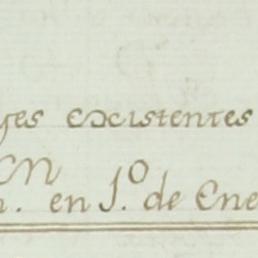 ges existentes
en 1.º de Ene